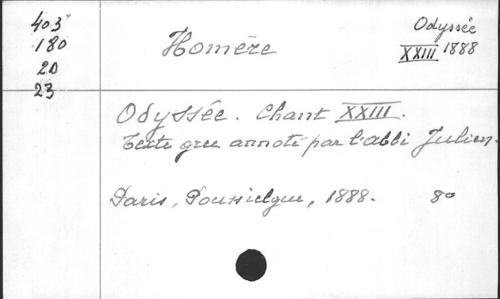 403
180
20
23
Homère
Odyssée
XXIII 1888
Odyssée. Chant XXIII.
Texte grec annoté par l'abbé Julien.
Paris, Poussielgue, 1888. 8o